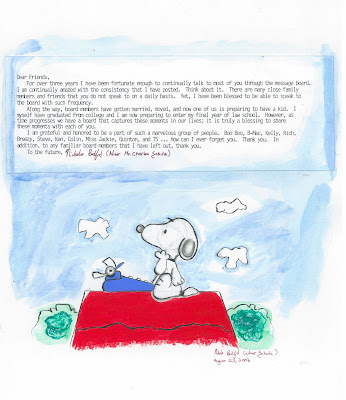 Dear Friends,
For over three years I have been fortunate enough to continually talk to most of you through the message board.
I am continually amazed with the consistency that I have posted. Think about it. There are many close family
members and friends that you do not speak to on a daily basis. Yet, I have been blessed to be able to speak to
the board with such frequency.
Along the way, board members have gotten married, moved, and now one of us is preparing to have a kid. I
myself have graduated from college and I am now preparing to enter my final year of law school. However, as
time progresses we have a board that captures these moments in our lives; it is truly a blessing to share
these moments with each of you.
I am grateful and honored to be a part of such a marvelous group of people. Boo Boo, B-Mac, Kelly, Rich,
Breezy, Steve, Ken, Colin, Miss Jackie, Quinton, and TS ... how can I ever forget you. Thank you. In
addition, to any familiar board members that I have left out, thank you.
To the future, (After Mr. Charles Schulz)
(After Schulz)
August 23, 2006